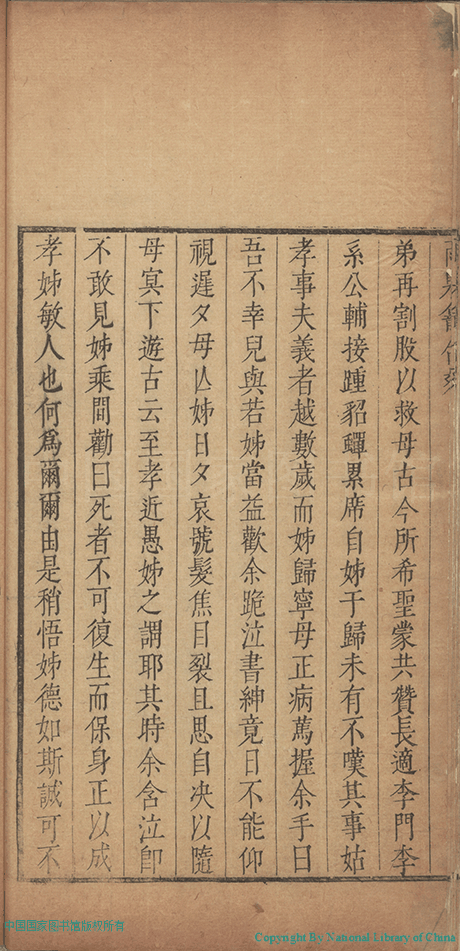 弟再割股以救母古今所希聖蒙共贊長適李門李
系公輔接踵貂蟬累席自姊于歸未有不嘆其事姑
孝事夫義者越數歲而姊歸寧母正病篤握余手曰
吾不幸兒與若姊當益歡余跪泣書紳竟日不能仰
視遅夕母亾姊日夕哀號髮焦目裂且思自决以隨
母冥下遊古云至孝近愚姊之謂耶其時余含泣卽
不敢見姊乘間勸曰死者不可復生而保身正以成
孝姊敏人也何爲爾爾由是稍悟姊德如斯誠可不
中国国家图书馆版权所有
Copyright By National Library of China